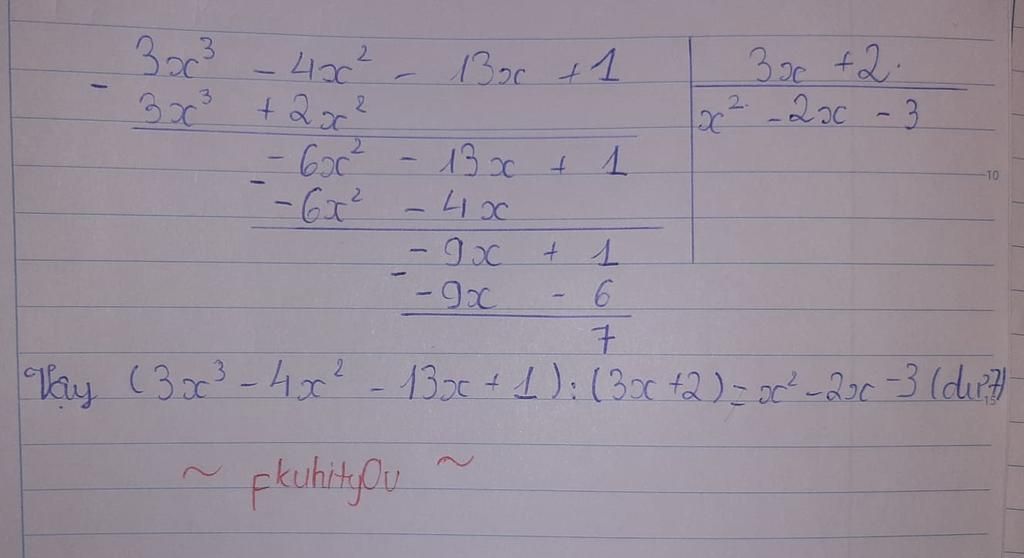 3x³ - 4x² - 13x + 1 | 3x + 2
- 3x³ + 2x² | x² - 2x - 3
- 6x² - 13x + 1
- - 6x² - 4x
- 9x + 1
- - 9x - 6
7
Vậy (3x³ - 4x² - 13x + 1) : (3x + 2) = x² - 2x - 3 (dư 7)
~ FkuhityOu ~
10